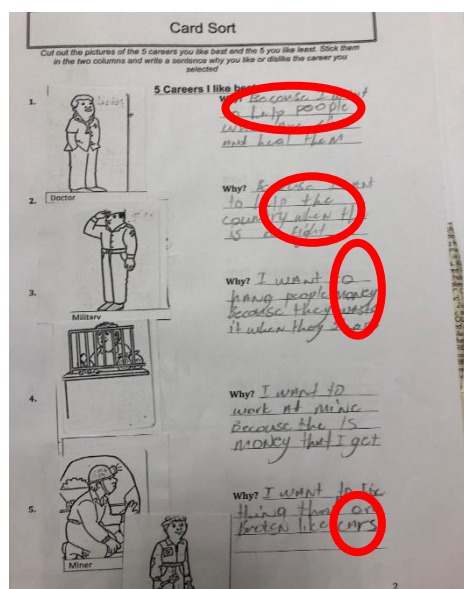 Card Sort
Cut out the pictures of the 5 careers you like best and the 5 you like least. Stick them
in the two columns and write a sentence why you like or dislike the career you
selected
5 Careers I like best
1.
Why? Because I want
to help poople
and heal them
Doctor
2.
Why? Because I want
to help the
country when the
is a fight
Military
3.
Why? I want to
hang people money
Because they waste
it when they
4.
Why? I want to
work at mine
Because the is
money that I get
Miner
5.
Why? I want to fix
thing that are
Broken like cars
2